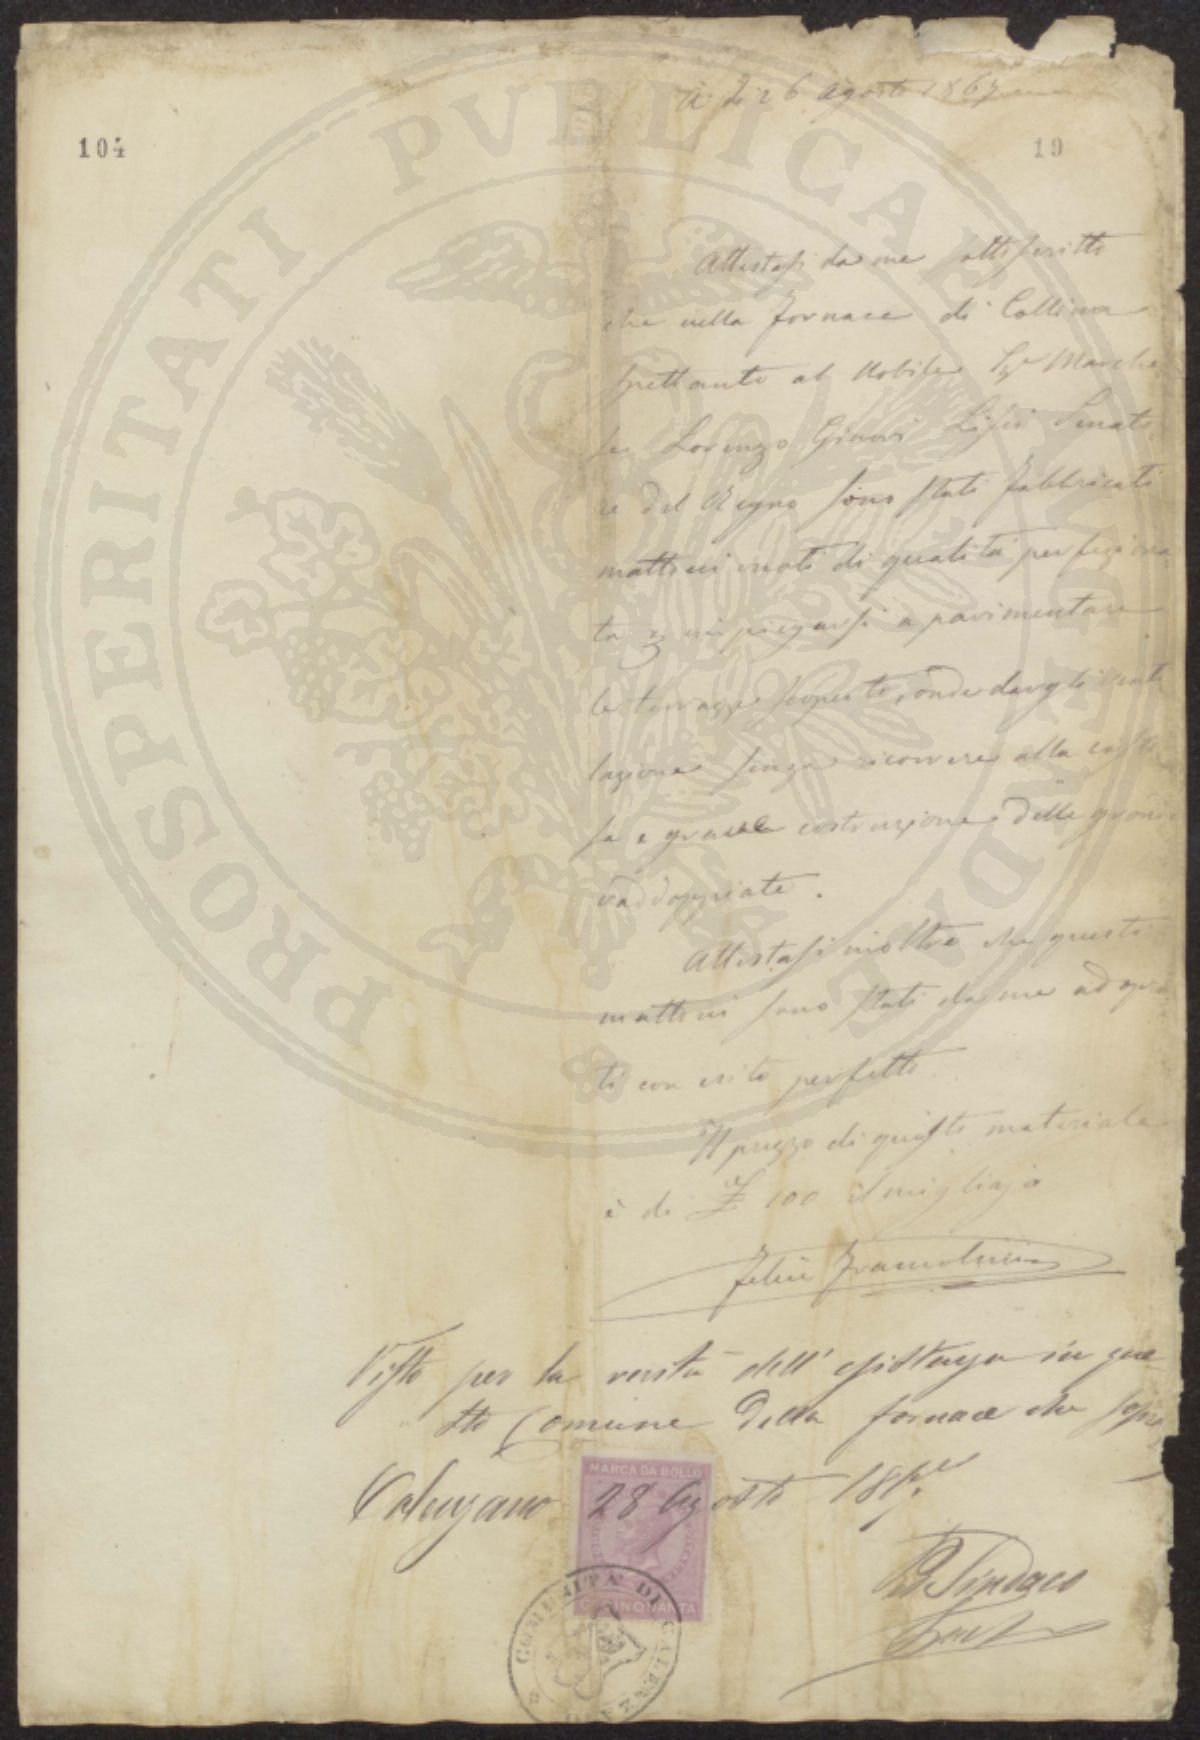 A dì 26 Agosto 1867
104
19
Attestasi da me sottoscritto
che nella fornace di Collina
spettante al Nobile Sig.r Marche
se Lorenzo Ginori Lisci Senato
re del Regno sono stati fabbricati
mattoni vuoti di qualità perfeziona
ta impiegarsi a pavimentare
le terrazze scoperte, onde dargli venti
lazione senza ricorrere alla costo
sa e grave costruzione delle gronde
raddoppiate.
Attestasi inoltre che questi
mattoni sono stati da me adopra
ti con esito perfetto.
Il prezzo di questo materiale
è di £ 100 il migliajo
Felice Francolini
Visto per la verità dell' esistenza in que
sto Comune della fornace che sopra
Calenzano 28 Agosto
Il Sindaco
MARCA DA BOLLO
C. CINQUANTA
COMUNITA' DI CALENZANO
PROSPERITATI PVBLICAE AVGENDAE